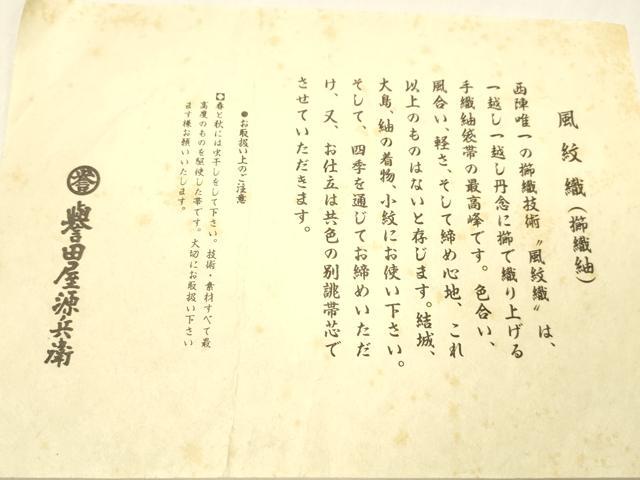 風紋織(櫛織紬)
西陣唯一の櫛織技術〝風紋織〟は、
一越し一越し丹念に櫛で織り上げる
手織紬袋帯の最高峰です。色合い、
風合い、軽さ、そして締め心地、これ
以上のものはないと存じます。結城、
大島、紬の着物、小紋にお使い下さい。
そして、四季を通じてお締めいただ
け、又、お仕立は共色の別誂帯芯で
させていただきます。
●お取扱い上のご注意
春と秋には虫干しをして下さい。技術・素材すべて最
高度のものを駆使した帯です。大切にお取扱い下さい
ます様お願いいたします。
誉田屋源兵衛